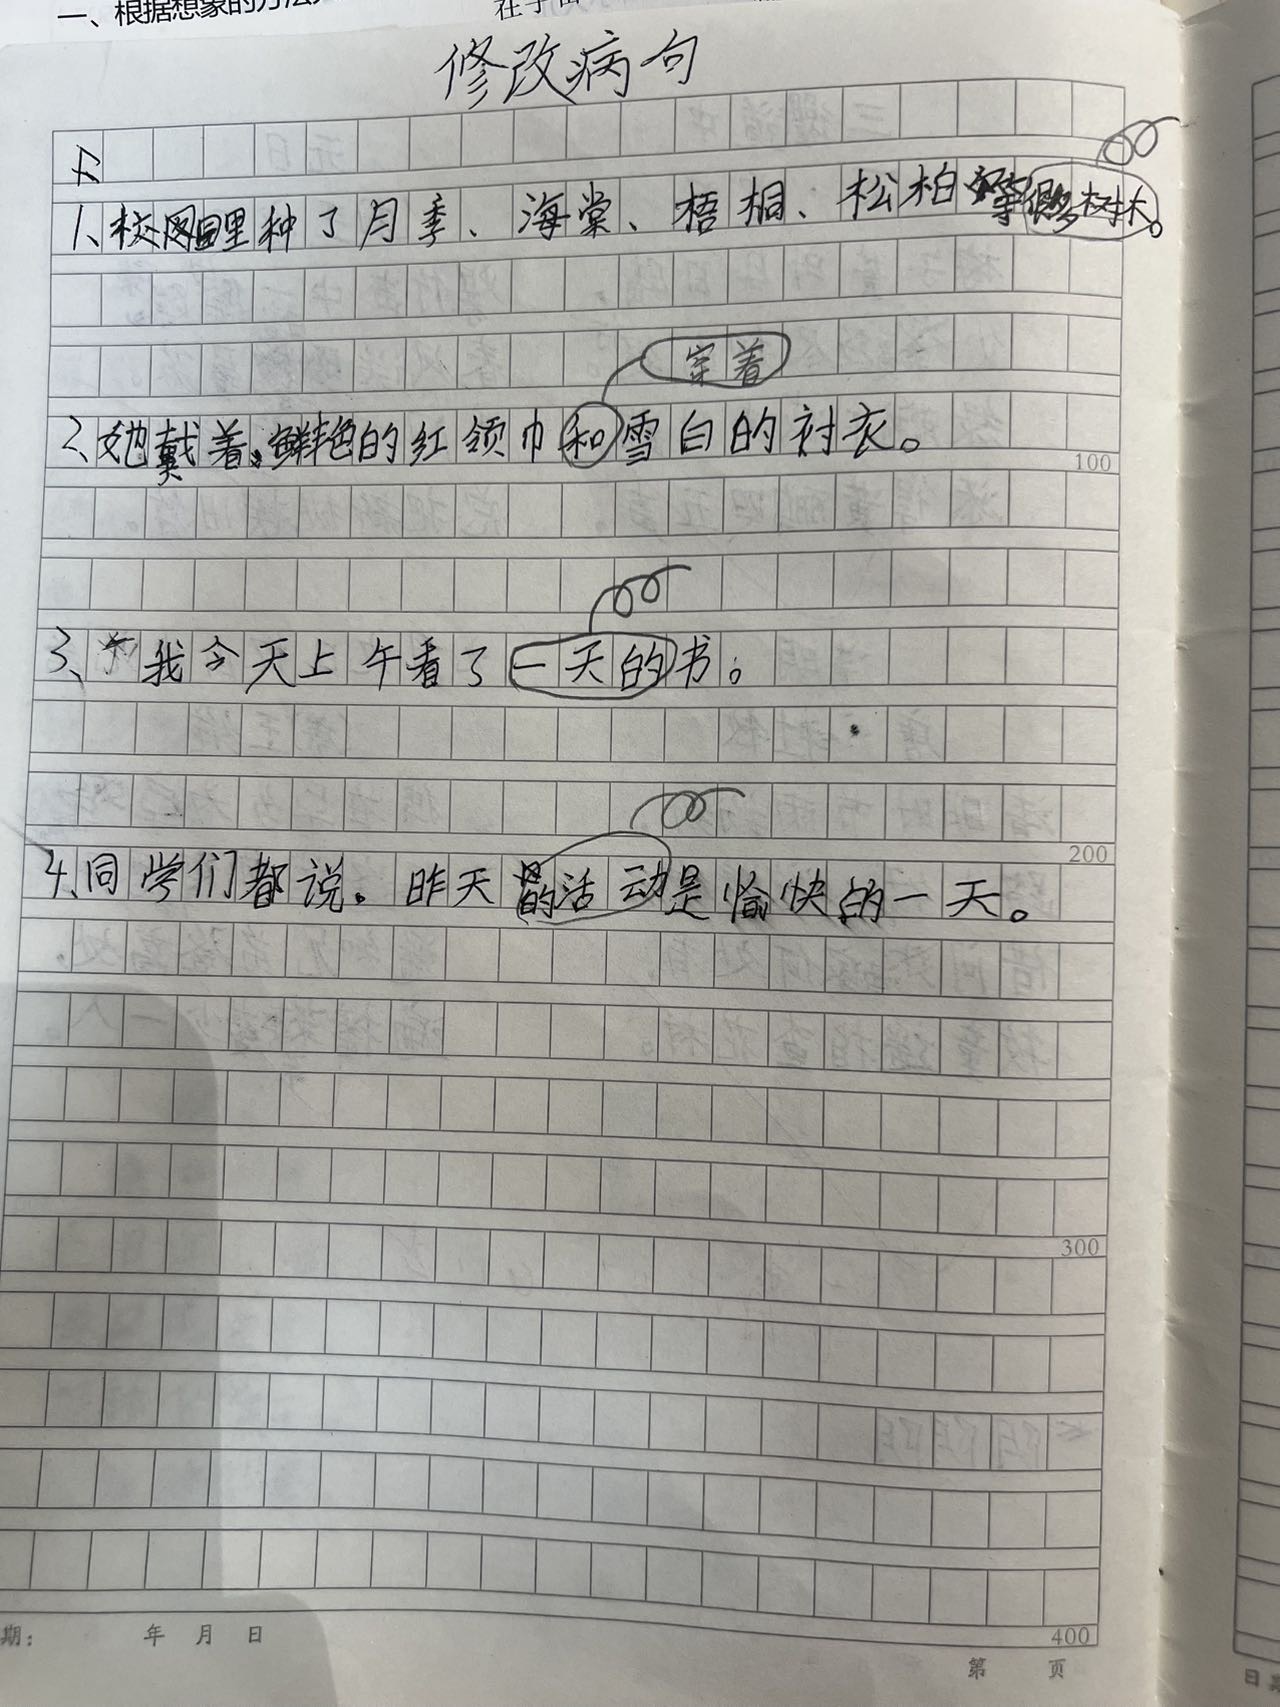 一、根据想象的方法
修改病句
1、校园里种了月季、海棠、梧桐、松柏等很多树木。
穿着
2、她戴着鲜艳的红领巾和雪白的衬衣。
100
3、我今天上午看了一天的书。
200
4、同学们都说。昨天的活动是愉快的一天。
300
400
期: 年 月 日
第 页